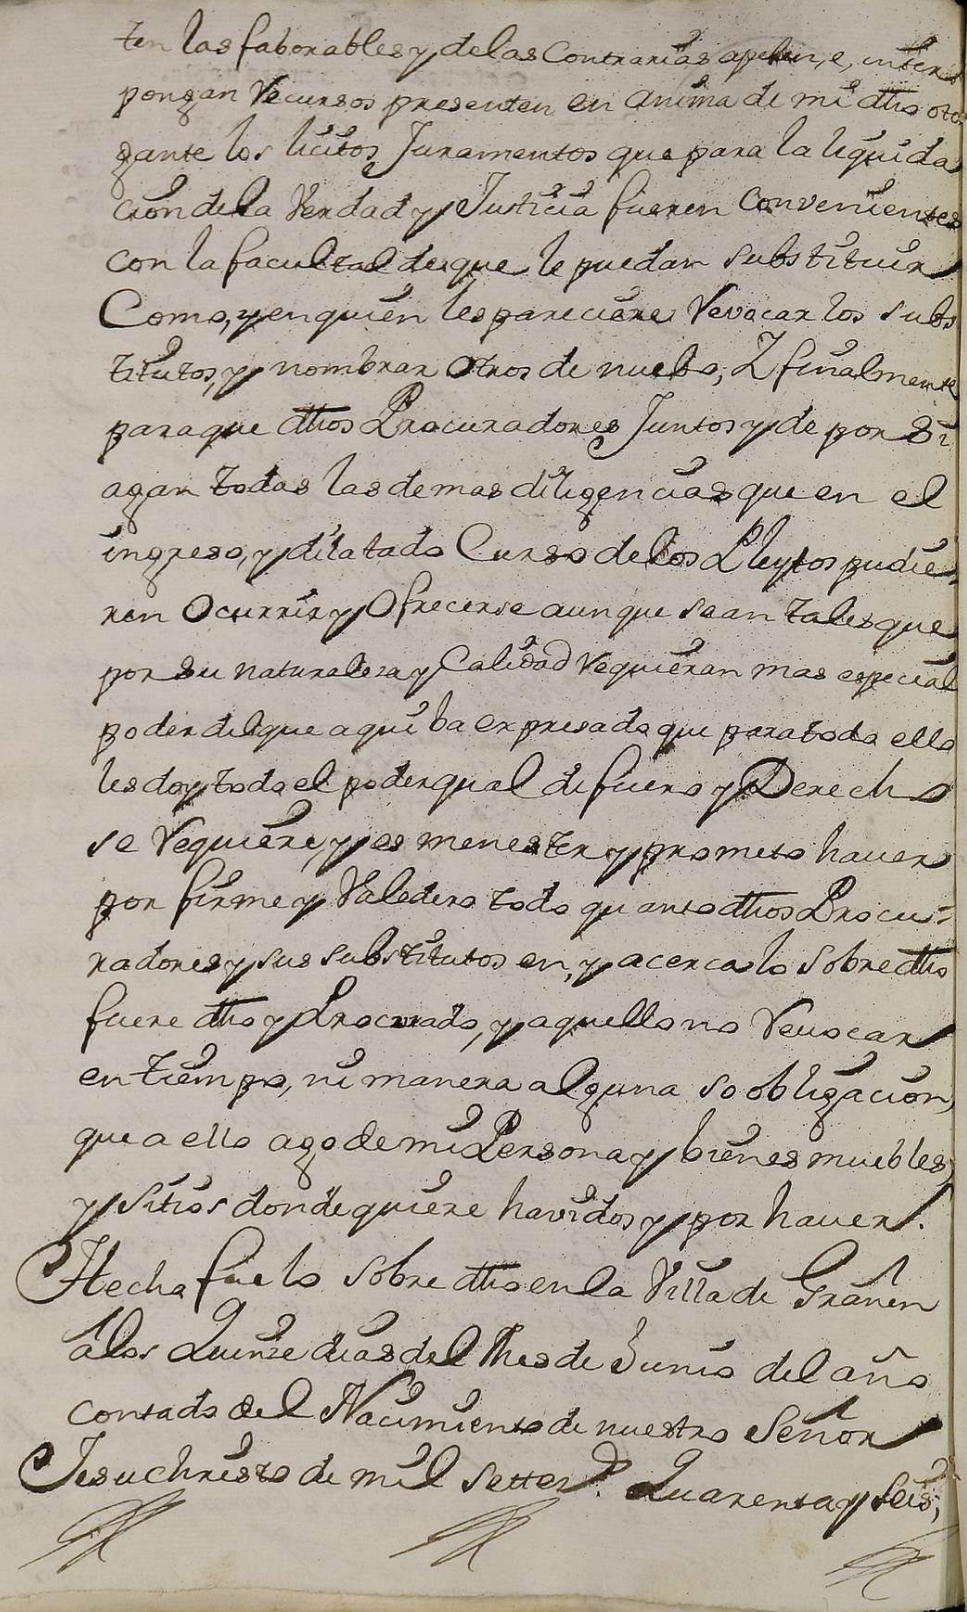 ten las faborables y de las Contrarias apelen, e, inter
pongan Recursos presenten en anima de mi dho oto
gante los licitos Juramentos que para la liquida
cion de la Verdad y Justicia fueren Convenientes
con la facultad de que le puedan substituir
Como, y en quien les pareciere Revocar los subs
titutos, y nombrar otros de nuebo, Y finalmente
para que dhos Procuradores Juntos y de por Si
agan todas las demas diligencias que en el
ingreso, y dilatado Curso de los Pleytos pudie
ren Ocurrir y Ofrecerse aunque sean tales que
por su naturaleza y Calidad Requieran mas especial
poder del que aqui ba expresado que para todo ello
les doy todo el poder qual de fuero y Derecho
se Requiere, y es menester y prometo haver
por firme y Valedero todo quanto dhos Procu-
radores y sus substitutos en, y acerca lo Sobredho
fuere dho y Procurado, y aquello no Revocar
en tiempo, ni manera alguna so obligacion,
que a ello ago de mi Persona y bienes muebles,
y sitios donde quiere havidos y por haver.
Hecho fue lo Sobredho en la Villa de Grañen
à los Quinze dias del Mes de Junio del año
contado del Nacimiento de nuestro Señor
Jesuchristo de mil Settez.os Quarenta y Seis;